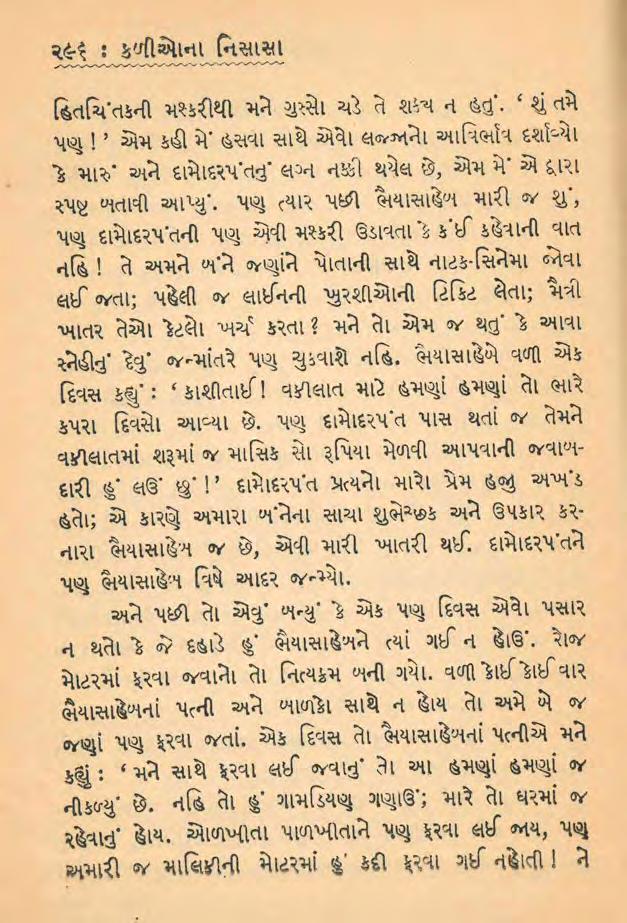 ૨૯૬ : કળીઓના નિસાસા
હિતચિંતકની મશ્કરીથી મને ગુસ્સો ચડે તે શક્ય ન હતું. ‘ શું તમે
પણ ! ’ એમ કહી મેં હસવા સાથે એવો લજ્જાનો આવિર્ભાવ દર્શાવ્યો
કે મારું અને દામોદરપંતનું લગ્ન નક્કી થયેલ છે, એમ મેં એ દ્વારા
સ્પષ્ટ બતાવી આપ્યું. પણ ત્યાર પછી ભૈયાસાહેબ મારી જ શું,
પણ દામોદરપંતની પણ એવી મશ્કરી ઉડાવતા કે કંઈ કહેવાની વાત
નહિ ! તે અમને બંને જણાંને પોતાની સાથે નાટક-સિનેમા જોવા
લઈ જતા; પહેલી જ લાઈનની ખુરશીઓની ટિકિટ લેતા; મૈત્રી
ખાતર તેઓ કેટલો ખર્ચ કરતા ? મને તો એમ જ થતું કે આવા
સ્નેહીનું દેવું જન્માંતરે પણ ચુકવાશે નહિ. ભૈયાસાહેબે વળી એક
દિવસ કહ્યું : ‘ કાશીતાઈ ! વકીલાત માટે હમણાં હમણાં તો ભારે
કપરા દિવસો આવ્યા છે. પણ દામોદરપંત પાસ થતાં જ તેમને
વકીલાતમાં શરૂમાં જ માસિક સો રૂપિયા મેળવી આપવાની જવાબ-
દારી હું લઉં છું ! ’ દામોદરપંત પ્રત્યનો મારો પ્રેમ હજુ અખંડ
હતો; એ કારણે અમારા બંનેના સાચા શુભેચ્છક અને ઉપકાર કર-
નારા ભૈયાસાહેબ જ છે, એવી મારી ખાતરી થઈ. દામોદરપંતને
પણ ભૈયાસાહેબ વિષે આદર જન્મ્યો.
અને પછી તો એવું બન્યું કે એક પણ દિવસ એવો પસાર
ન થતો કે જે દહાડે હું ભૈયાસાહેબને ત્યાં ગઈ ન હોઉં. રોજ
મોટરમાં ફરવા જવાનો તો નિત્યક્રમ બની ગયો. વળી કોઈ કોઈ વાર
ભૈયાસાહેબનાં પત્ની અને બાળકો સાથે ન હોય તો અમે બે જ
જણાં પણ ફરવા જતાં. એક દિવસ તો ભૈયાસાહેબનાં પત્નીએ મને
કહ્યું : ‘ મને સાથે ફરવા લઈ જવાનું તો આ હમણાં હમણાં જ
નીકળ્યું છે. નહિ તો હું ગામડિયણ ગણાઉં; મારે તો ઘરમાં જ
રહેવાનું હોય. ઓળખીતા પાળખીતાને પણ ફરવા લઈ જાય, પણ
અમારી જ માલિકીની મોટરમાં હું કદી ફરવા ગઈ નહોતી ! ને